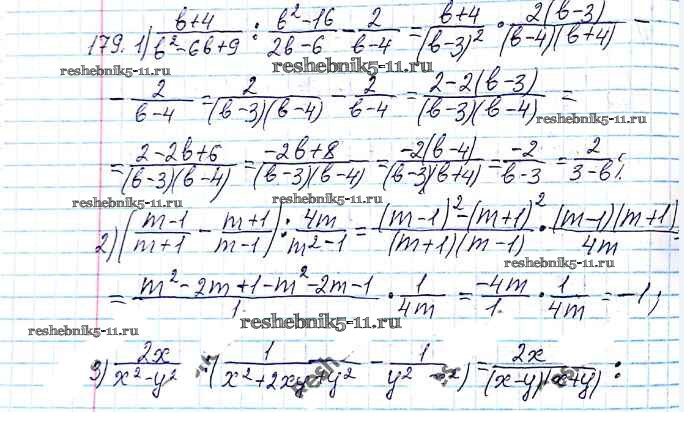 179. 1) (b+4)/(b²-6b+9) : (b²-16)/(2b-6) - 2/(b-4) = (b+4)/(b-3)² · 2(b-3)/((b-4)(b+4)) -
reshebnik5-11.ru reshebnik5-11.ru
- 2/(b-4) = 2/((b-3)(b-4)) - 2/(b-4) = (2-2(b-3))/((b-3)(b-4)) =
reshebnik5-11.ru
= (2-2b+6)/((b-3)(b-4)) = (-2b+8)/((b-3)(b-4)) = (-2(b-4))/((b-3)(b+4)) = -2/(b-3) = 2/(3-b);
reshebnik5-11.ru reshebnik5-11.ru
2) ((m-1)/(m+1) - (m+1)/(m-1)) : 4m/(m²-1) = ((m-1)²-(m+1)²)/((m+1)(m-1)) · ((m-1)(m+1))/4m =
reshebnik5-11.ru
= (m²-2m+1-m²-2m-1)/1 · 1/4m = -4m/1 · 1/4m = -1;
reshebnik5-11.ru reshebnik5-11.ru
3) 2x/(x²-y²) : (1/(x²+2xy+y²) - 1/(y²-x²)) = 2x/((x-y)(x+y)) :